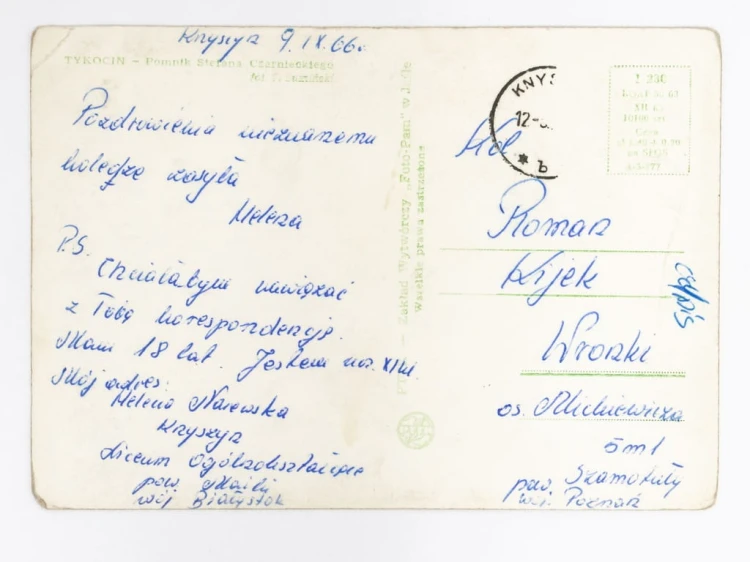 Knyszyn 9.IX.66.
TYKOCIN – Pomnik Stefana Czarnieckiego
fot.
Pozdrowienia nieznanemu
koledze zasyła
Helena
P.S.
Chciałabym nawiązać
z Tobą korespondencję.
Mam 18 lat. Jestem ucz. XI kl.
Mój adres:
Helena Narewska
Knyszyn
Liceum Ogólnokształcące
pow. Mońki
woj Białystok
Zakład Wytwórczy "Foto-Pam" w
Wszelkie prawa zastrzeżone
KNYS
12-
b
Kol
Roman
Kijek
Wronki
os. Mickiewicza
5 m 1
pow. Szamotuły
woj. Poznań
odpis